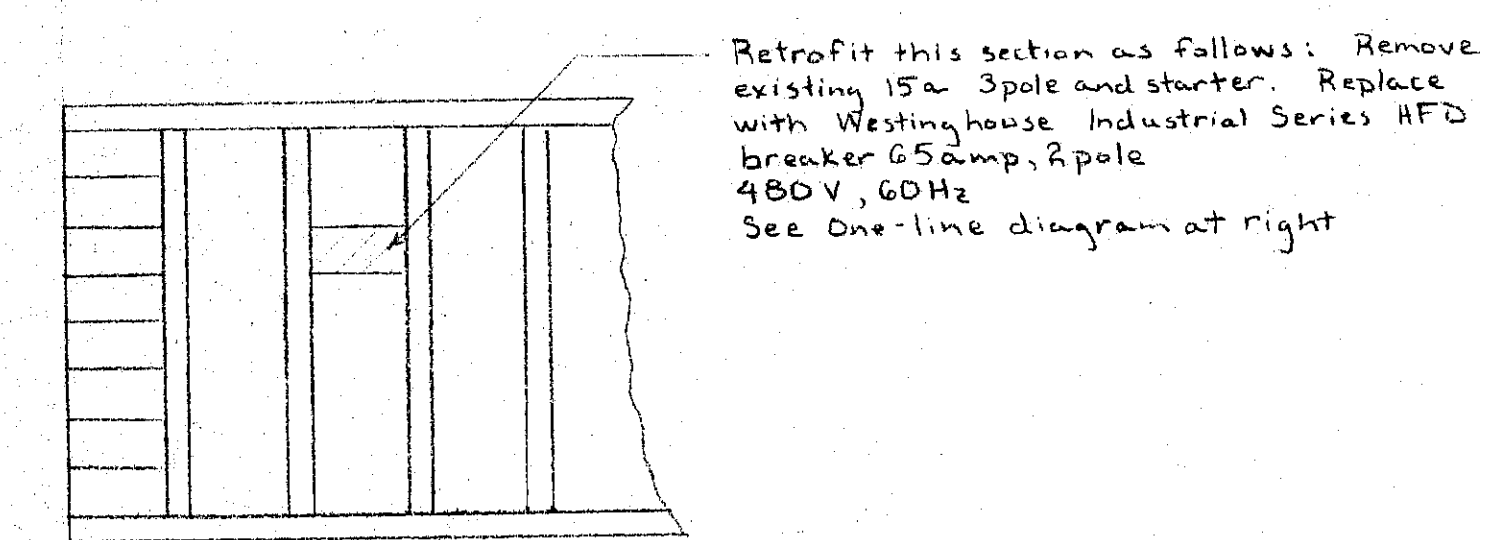 Retrofit this section as follows: Remove
existing 15a 3pole and starter. Replace
with Westinghouse Industrial Series HFD
breaker 65amp, 2pole
480V, 60Hz
See One-line diagram at right